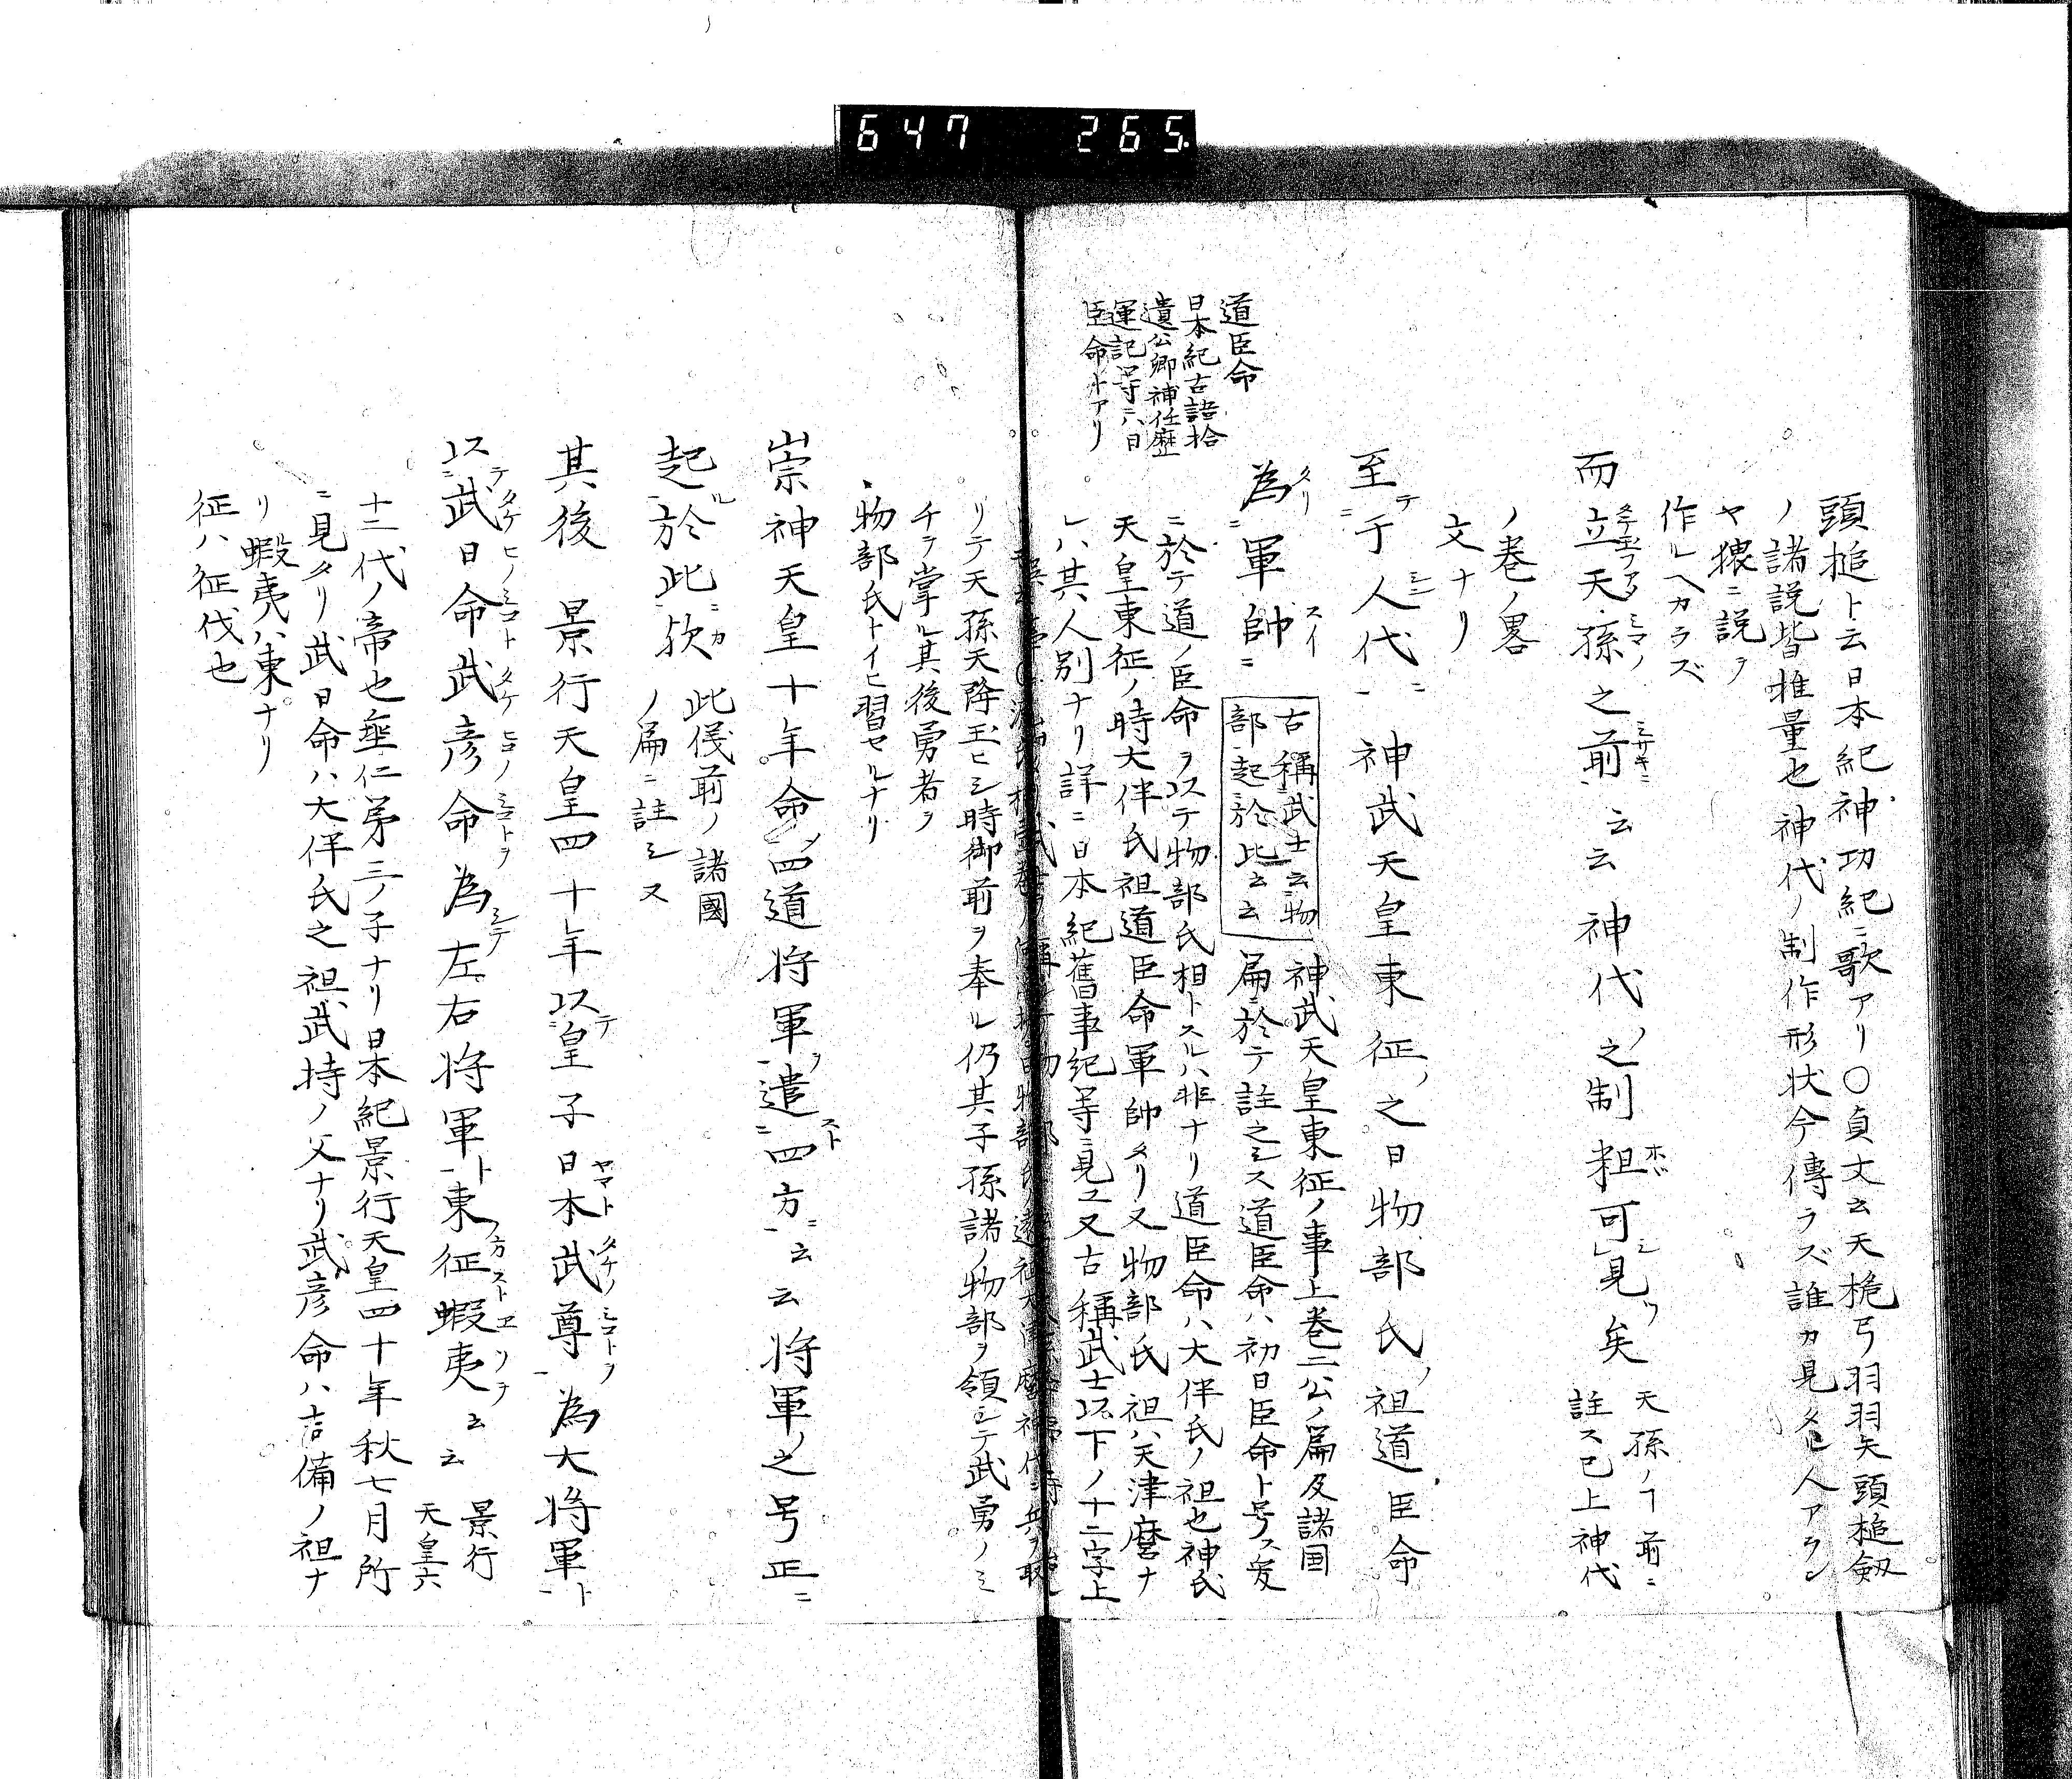 647 265
頭槌ト云日本紀神功紀ニ歌アリ〇貞丈云天梔弓羽羽矢頭槌劔
ノ諸説皆推量也神代ノ制作形状今傳ラズ誰カ見タル人アラン
ヤ猥ニ説ヲ
作ルヘカラズ
而立天孫之前云云神代之制粗可見矣
天孫ノ丁前ニ
註ス已上神代
ノ巻ノ畧
文ナリ
至于人代神武天皇東征之日物部氏祖道臣命
為軍帥
古稱武士云物
部起於此云云
神武天皇東征ノ事上巻二公ノ篇及諸国
篇ニ於テ註之ス道臣命ハ初日臣命ト号ス爰
ニ於テ道ノ臣命ヲ以テ物部氏相トスルハ非ナリ道臣命ハ大伴氏ノ祖也神武
天皇東征ノ時大伴氏祖道臣命軍帥タリ又物部氏祖ハ天津麿ナ
レハ其人別ナリ詳ニ日本紀舊事紀等ニ見ユ又古稱武士以下ノ十二字上
道臣命
日本紀古語拾
遺公卿神任歴
運記等ニハ日
臣命トアリ
リテ天孫天降玉ヒシ時御前ヲ奉ル仍其子孫諸ノ物部ヲ領シテ武勇ノミ
チヲ掌ル其後勇者ヲ
物部氏トイヒ習セルナリ
崇神天皇十年命四道将軍遣四方云云将軍之号正
起於此歟
此伐前ノ諸國
ノ篇ニ註シヌ
其後景行天皇四十年以皇子日本武尊為大将軍
以武日命武彦命為左右将軍東征蝦夷云云
景行
天皇六
十二代ノ帝也垂仁第三ノ子ナリ日本紀景行天皇四十年秋七月所
ニ見タリ武日命ハ大伴氏之祖武持ノ父ナリ武彦命ハ吉備ノ祖ナ
リ蝦夷ハ東ナリ
征ハ征伐也